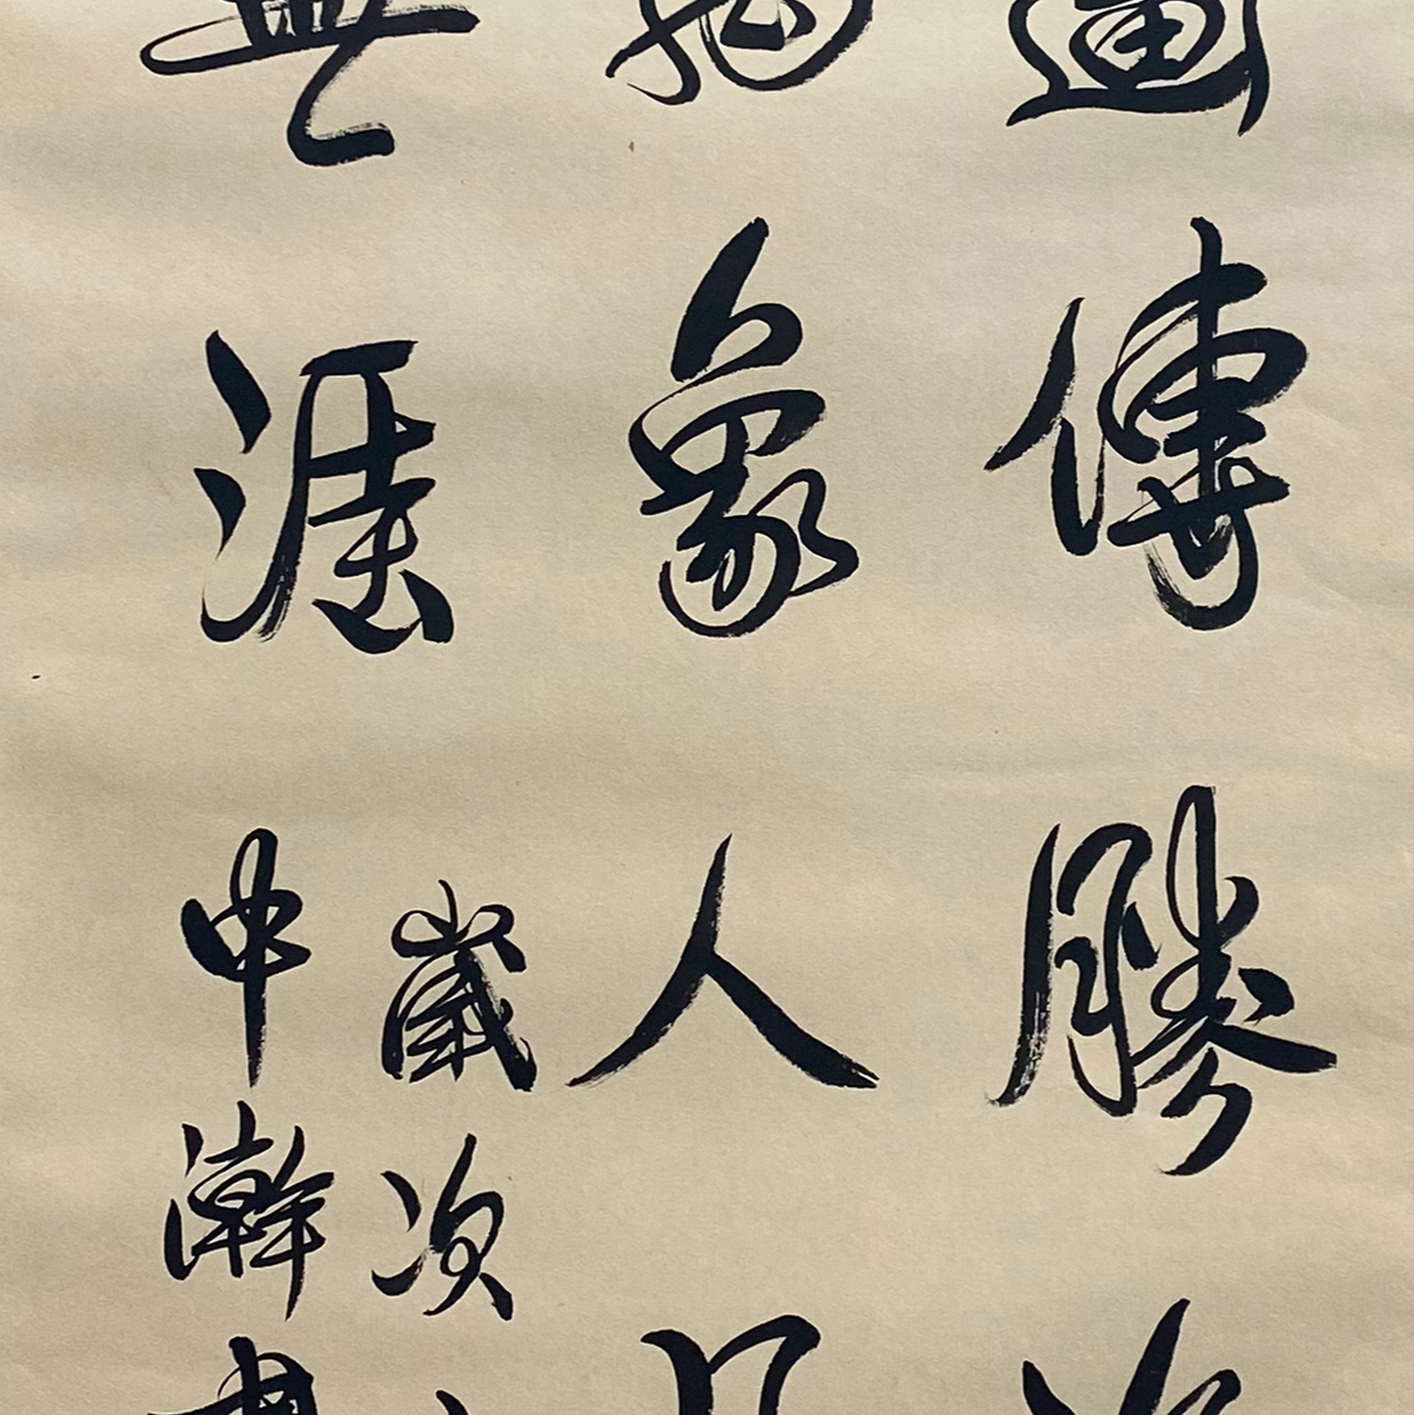 傳勝
象人
無涯
歲次
中瀚書